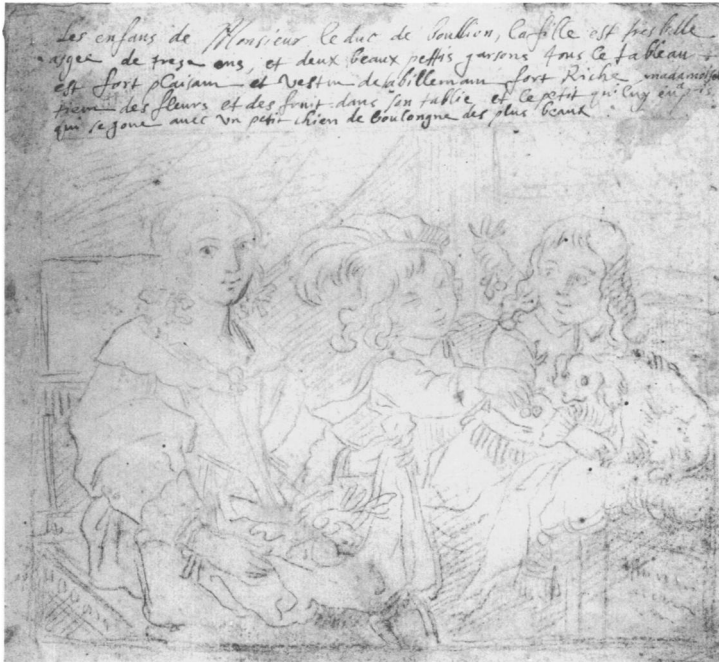 Les enfans de Monsieur le duc de boullion, la fille est tres belle
aagee de trese ans, et deux beaux pettis garsons tous le tableau
est fort plaisam et vestu de abilleman fort Riche
tiene des fleurs et des fruit dans son tablie et le petit qui luy
qui se goue avec un petit chien de boulongne des plus beaux